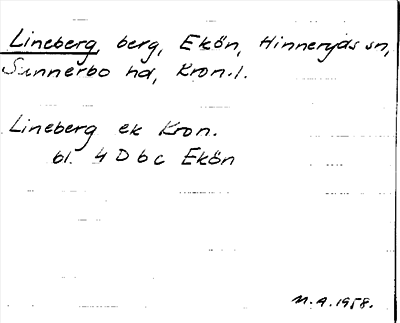 Lineberg, berg, Ekön, Hinneryds sn,
Sunnerbo hd, Kron.l.
Lineberg ek Kron.
bl. 4 D b c Ekön
M.A. 1958.